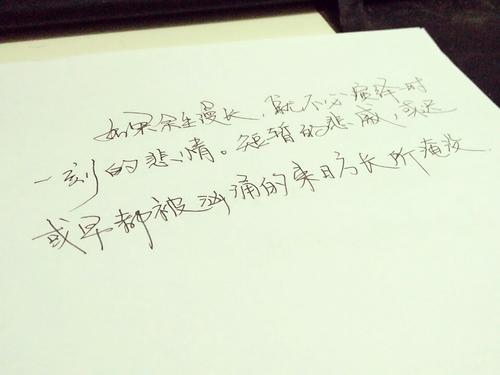 如果余生漫长，就不必演绎一时
一刻的悲情。短暂的悲戚，或迟
或早都被汹涌的来日方长所淹没